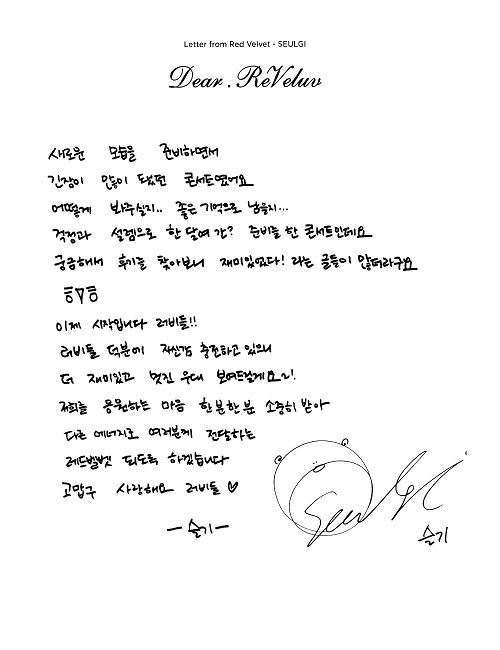 Letter from Red Velvet - SEULGI
Dear. ReVeluv
새로운 모습을 준비하면서
긴장이 많이 됐던 콘서트였어요
어떻게 봐주실지.. 좋은 기억으로 남을지...
걱정과 설렘으로 한 달여 간? 준비를 한 콘서트인데요
궁금해서 후기를 찾아보니 재미있었다! 라는 글들이 많더라구요
ㅎㅎ
이제 시작입니다 러비들!!
러비들 덕분에 자신감 충전하고 있으니
더 재미있고 멋진 무대 보여드릴게요~!
저희를 응원하는 마음 한분한분 소중히 받아
다른 에너지로 여러분께 전달하는
레드벨벳 되도록 하겠습니다
고맙구 사랑해요 러비들 ♡
- 슬기 -
Seulgi
슬기